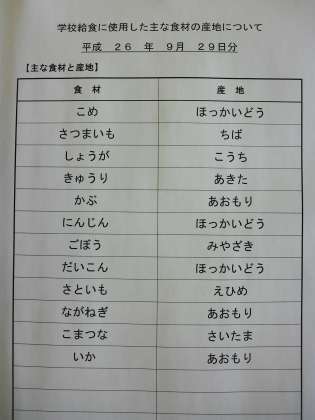 学校給食に使用した主な食材の産地について
平成 26 年 9月 29日分
【主な食材と産地】
食材 産地
こめ ほっかいどう
さつまいも ちば
しょうが こうち
きゅうり あきた
かぶ あおもり
にんじん ほっかいどう
ごぼう みやざき
だいこん ほっかいどう
さといも えひめ
ながねぎ あおもり
こまつな さいたま
いか あおもり